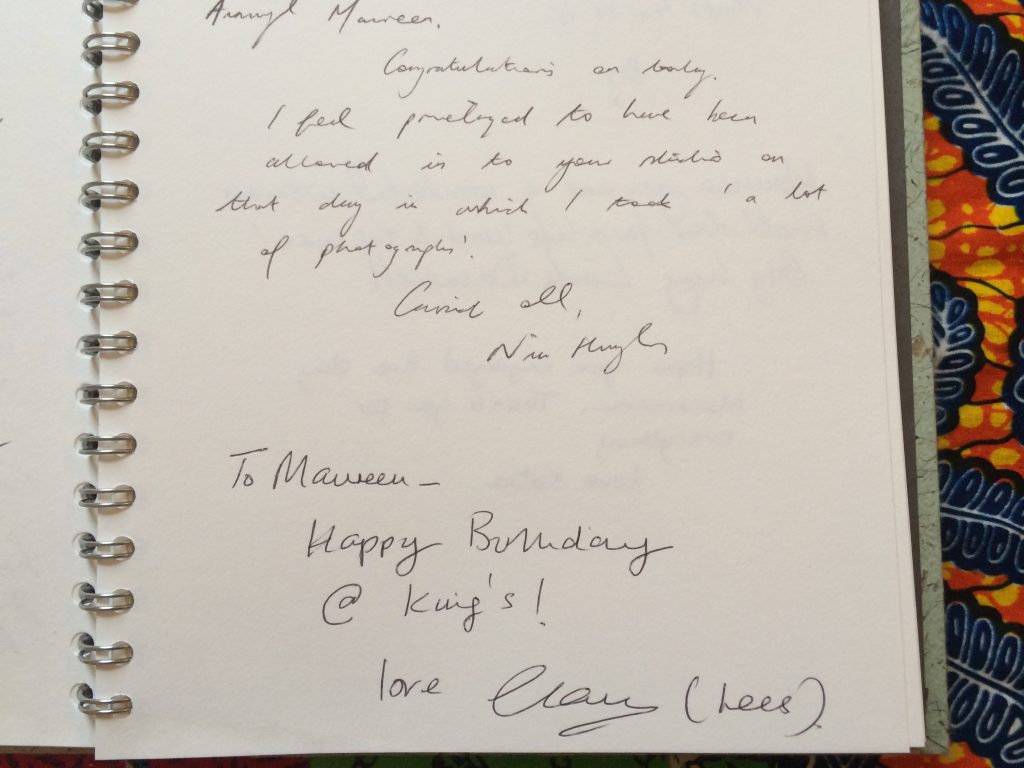 Maureen,
Congratulations on
I feel privileged to have been
allowed in to your studio on
that day in which I took 'a lot
of photographs'.
all,
To Maureen –
Happy Birthday
@ King's!
love (Lees).